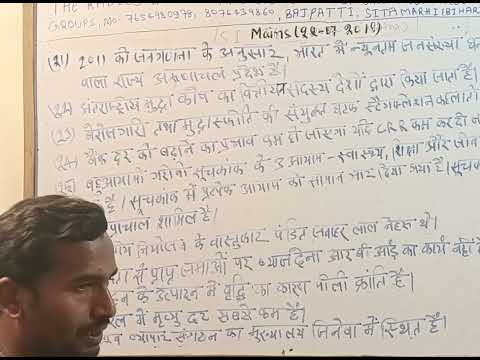 GROUPS, MO- 7654980978, 8076439860, BAJPATTI, SITAMARHI(BIHAR
Mains (22-07-2018)
(21) 2011 की जनगणना के अनुसार, भारत में न्यूनतम जनसंख्या घन
वाला राज्य अरुणाचल प्रदेश है।
अंतर्राष्ट्रीय मुद्रा कोष का वित्तीयन सदस्य देशों द्वारा किया जाता है।
(23) बेरोजगारी तथा मुद्रास्फीति की संयुक्त घटक स्टैगफ्लेशन कहलाता
बैंक दर को बढ़ाने का प्रभाव कम हो जाएगा यदि CRR कम कर दी ज
बहुआयामी गरीबी सूचकांक के 3 आयाम - स्वास्थ्य, शिक्षा और जीवन
हैं। सूचकांक में प्रत्येक आयाम को समान भार दिया गया है। सूचक
शामिल हैं।
नियोजन के वास्तुकार पंडित जवाहर लाल नेहरू थे।
में प्राप्त जमाओं पर ब्याज देना आर बी आई का कार्य नहीं है
के उत्पादन में वृद्धि का कारण पीली क्रांति है।
में मृत्यु दर सबसे कम है।
व्यापार संगठन का मुख्यालय जिनेवा में स्थित है।